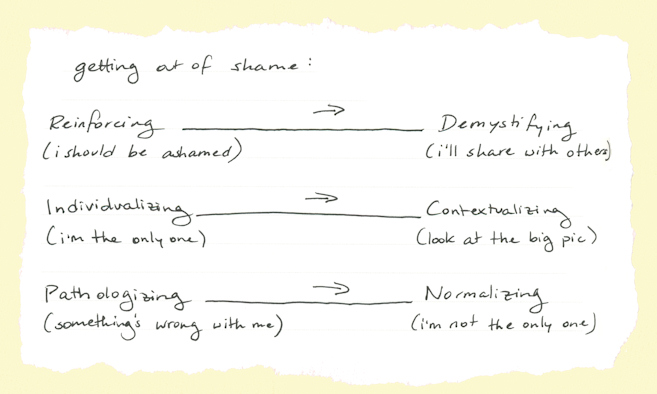 getting out of shame:
Reinforcing → Demystifying
(i should be ashamed) (i'll share with others)
Individualizing → Contextualizing
(i'm the only one) (look at the big pic)
Pathologizing → Normalizing
(something's wrong with me) (i'm not the only one)